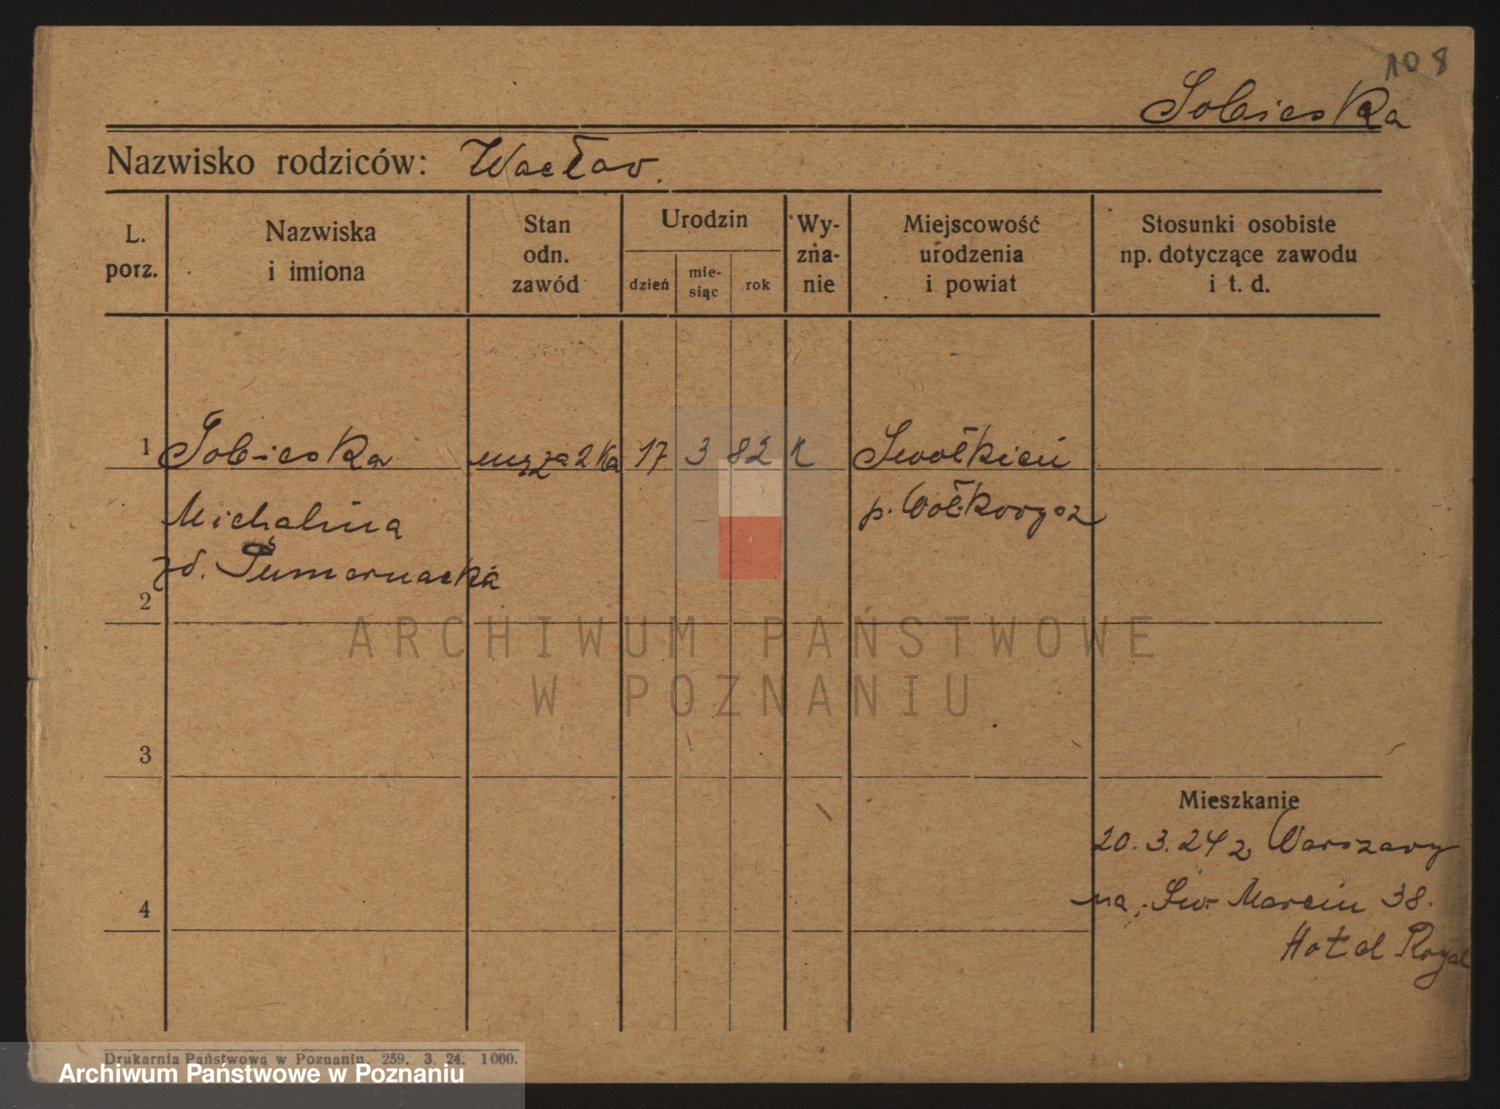 108
Sobieska
Nazwisko rodziców: Wacław.
L. porz.
Nazwiska i imiona
Stan odn. zawód
Urodzin
dzień
mie-siąc
rok
Wy-zna-nie
Miejscowość urodzenia i powiat
Stosunki osobiste np. dotyczące zawodu i t. d.
1 Sobieska 17 3 82 k
Michalina p. Wołkowysz
zd.
2
3
4
Mieszkanie
20. 3. 24 z Warszawy
na Św. Marcin 38.
Hotel Royal
Drukarnia Państwowa w Poznaniu. 259. 3. 24. 1000.
ARCHIWUM PAŃSTWOWE
W POZNANIU
Archiwum Państwowe w Poznaniu